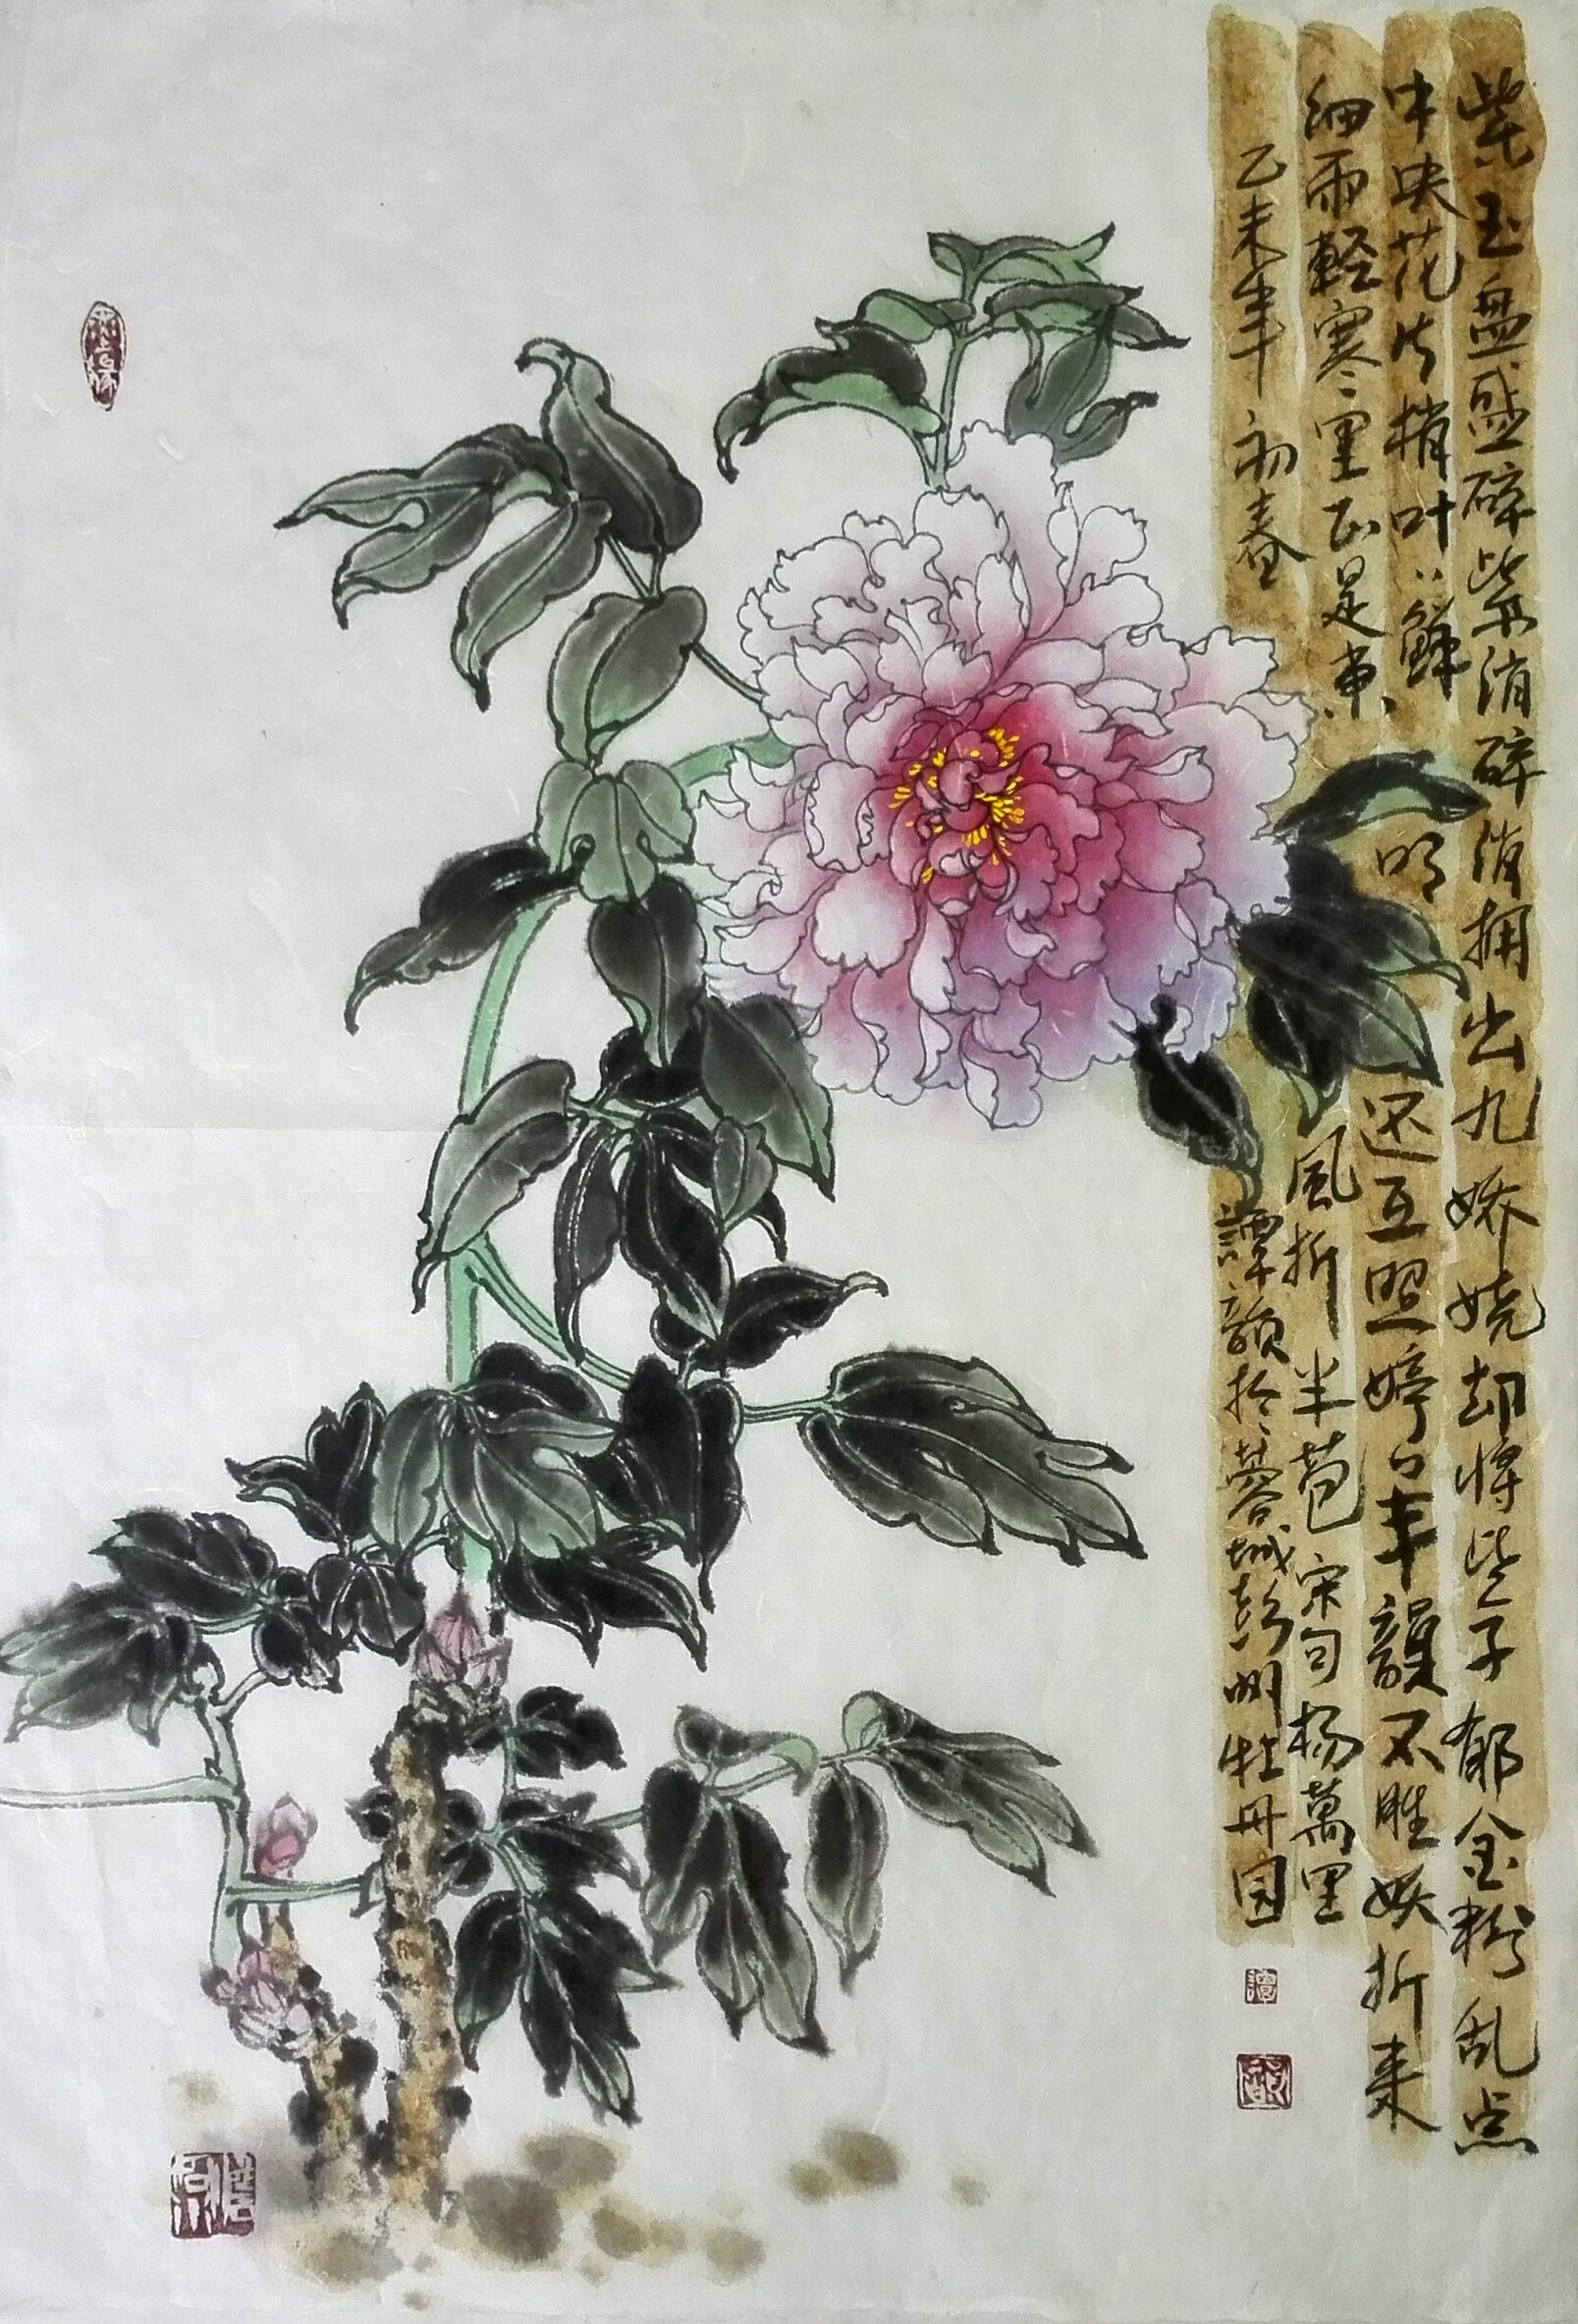 紫玉盘盛碎紫消碎消拥出九娇娆却将些子郁金粉乱点
中央花片梢叶〻鲜明还互照婷〻丰韻不胜妖折来
细雨軽寒里正是东風折半苞宋句杨萬里
乙未年初春譚韻於蓉城彭州牡丹园